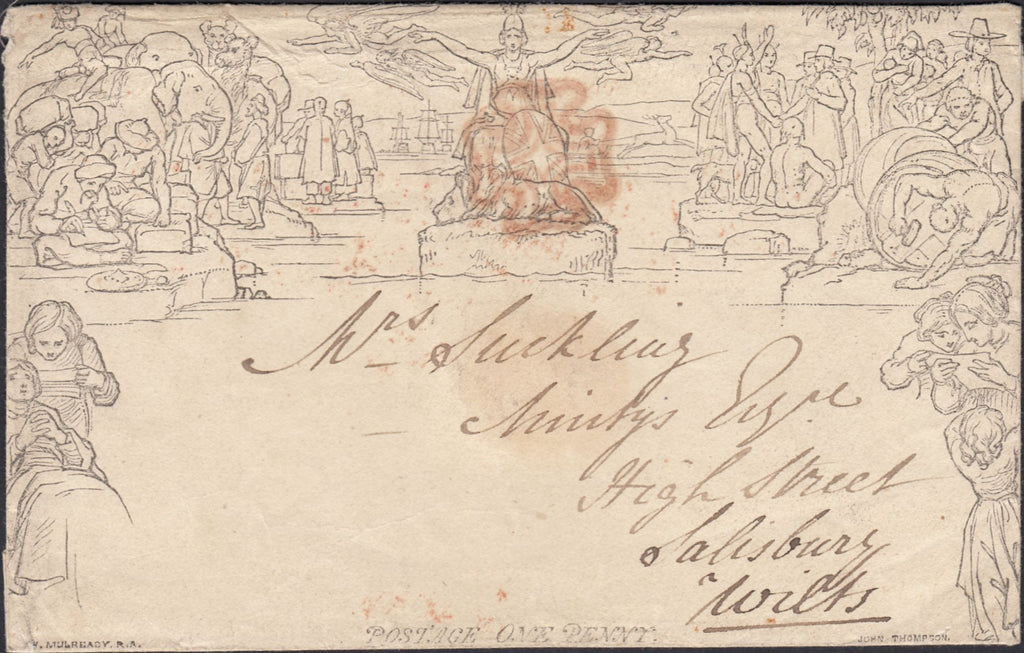 Mrs Suckling
Mintys Esqre
High Street
Salisbury
Wilts
POSTAGE ONE PENNY.
W. MULREADY. R.A.
JOHN THOMPSON.